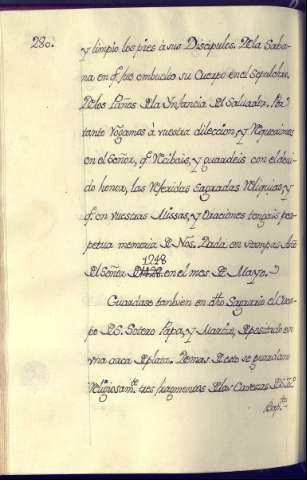 280.
y limpio los pies à sus Discipulos. De la Saba-
na en q.e fue embuelto su Cuerpo en el Sepulchro.
De los Paños de la Infancia del Salvador. Por
tanto rogamos à vuestra dileccion, y requerimos
en el Señor, q.e recibais, y guardeis con el devi-
do honor, las referidas sagradas Reliquias, y
q.e en vuestras Missas, y Oraciones tengais per-
petua memoria de Nos. Dada en Año
1248
del Señor en el mes de Mayo.
Guardase tambien en dho Sagrario el Cuer-
po de S. Sotero Papa, y Martir, depositado en
vna arca de plata. Demas de esto se guardan
Religiosam.te tres fragmentos de las Cavezas de